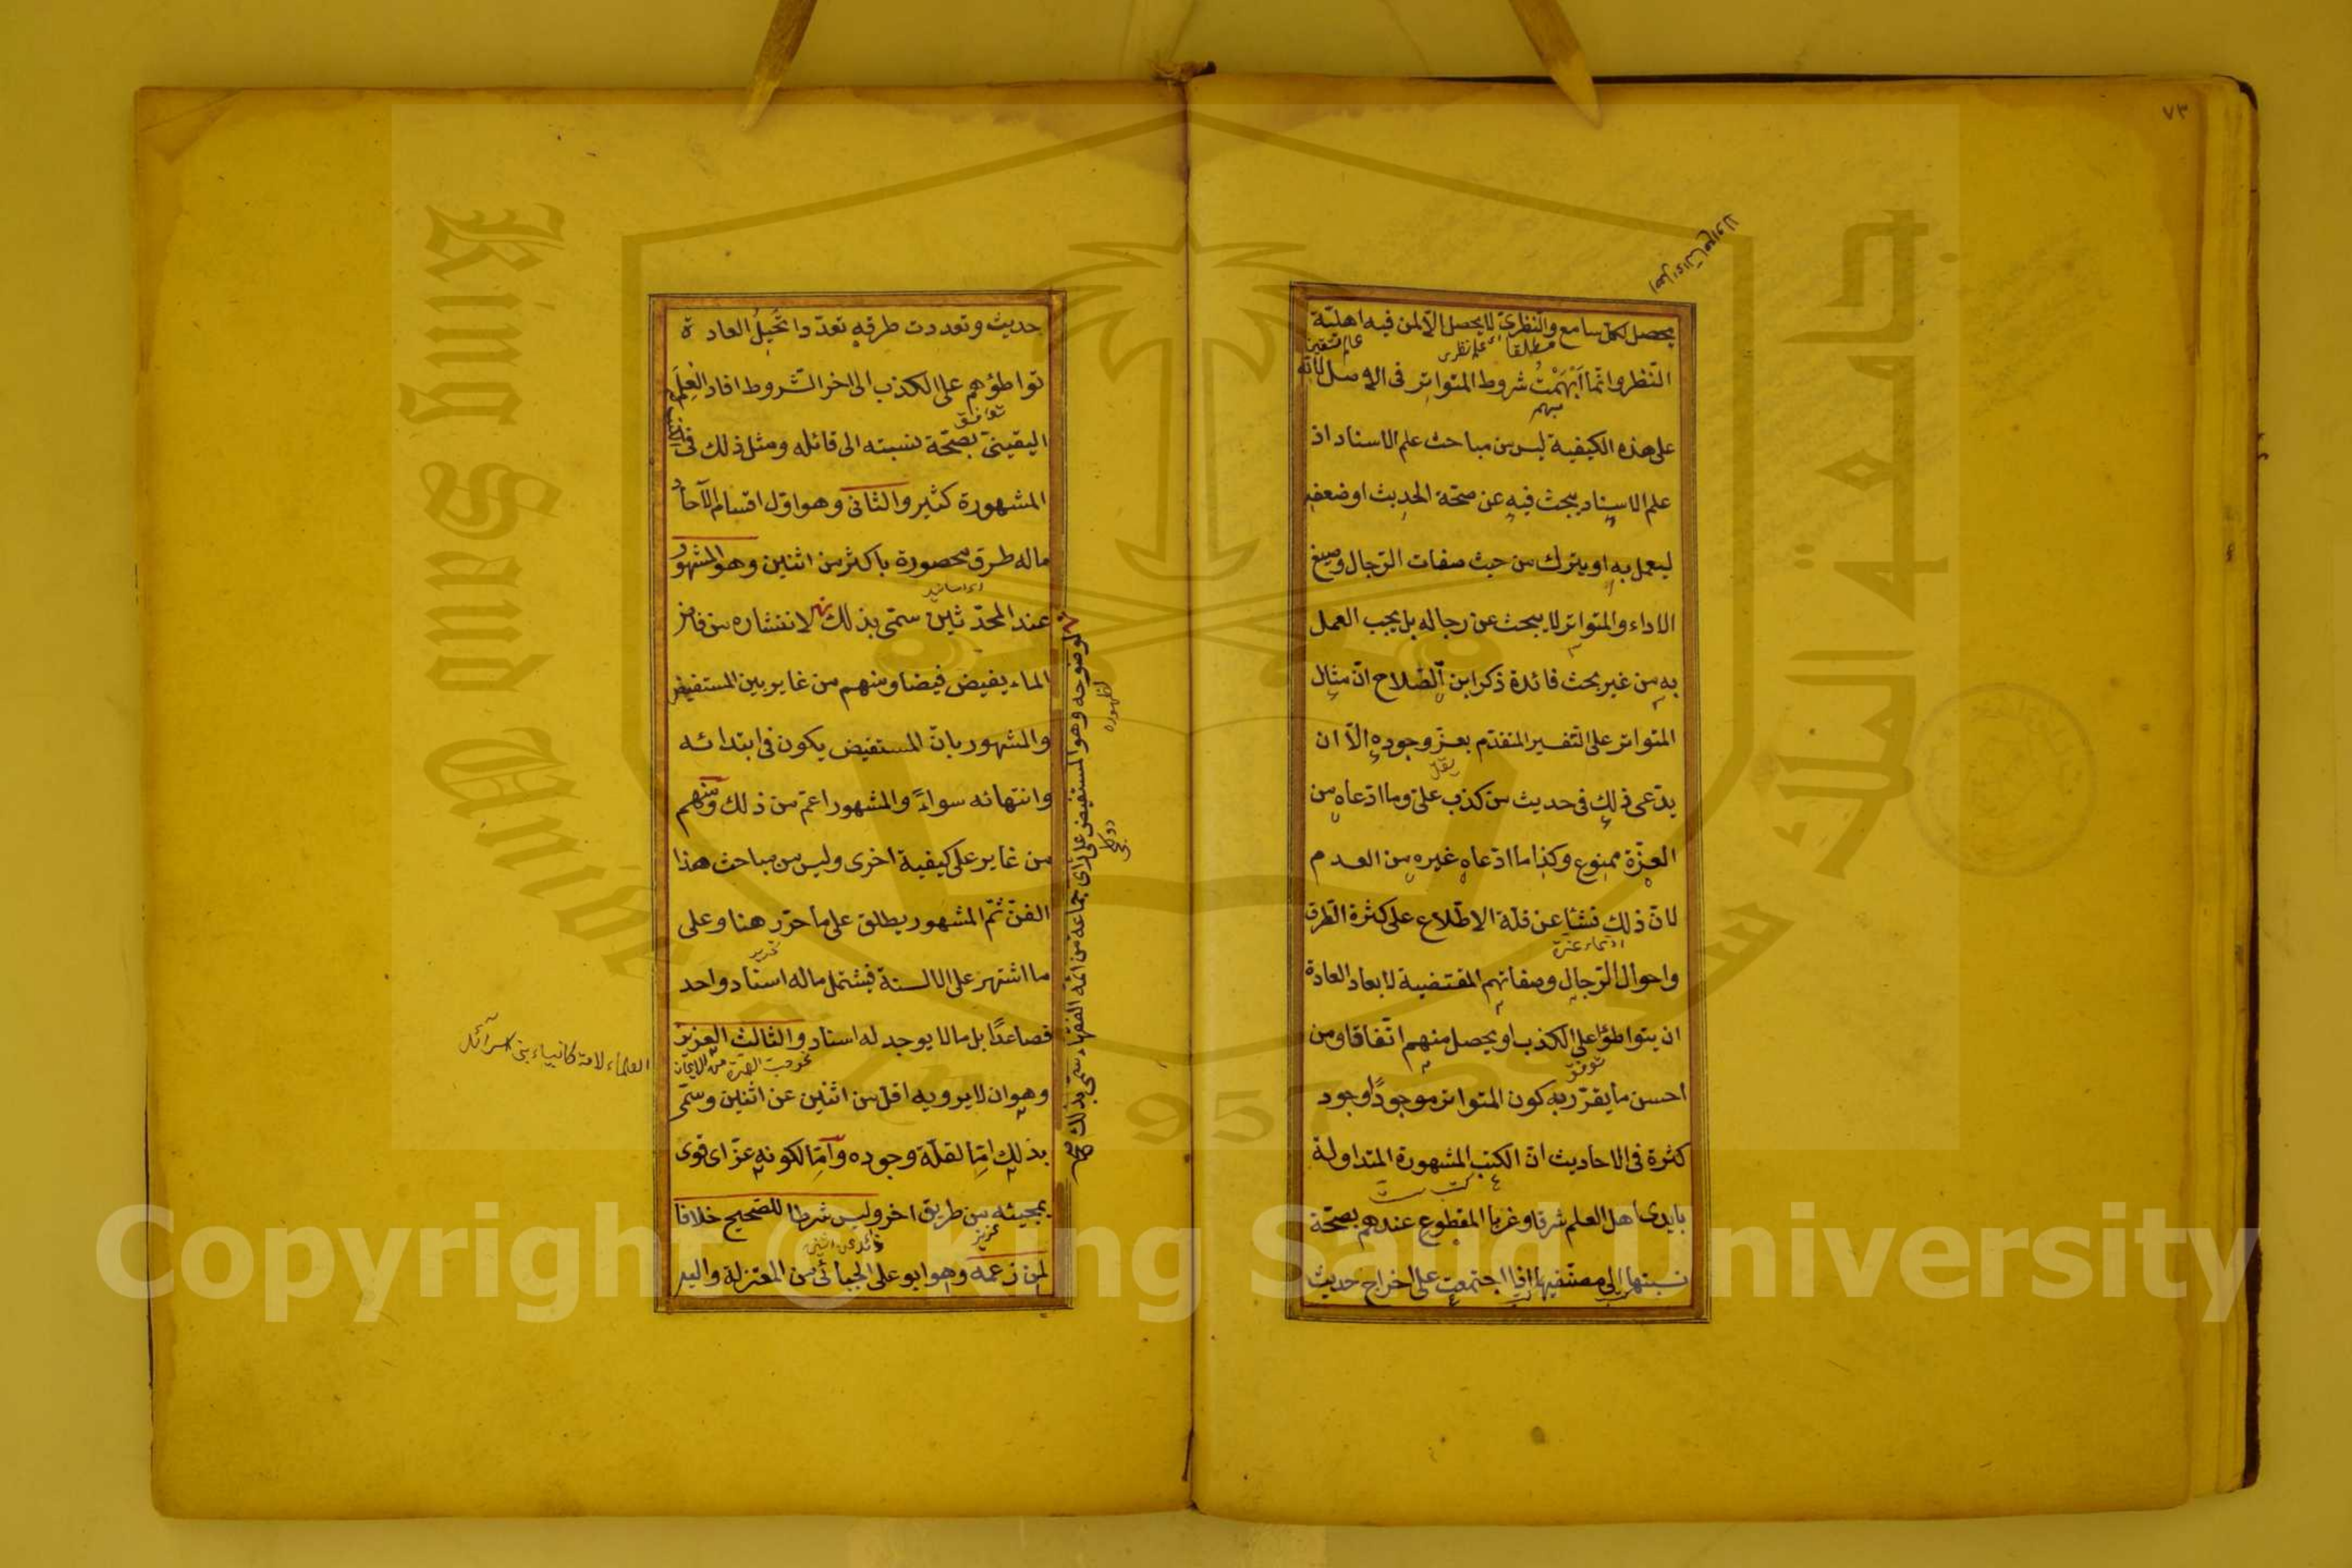 ٧٣
يحصل لكل سامع والنظرى لا يحصل الا لمن فيه اهلية
النظر وانما ابهمت شروط المتواتر فى الاصل لانه
على هذه الكيفية ليس من مباحث علم الاسناد اذ
علم الاسناد يبحث فيه عن صحة الحديث او ضعفه
ليعمل به او يترك من حيث صفات الرجال وصيغ
الاداء والمتواتر لا يبحث عن رجاله بل يجب العمل
به من غير بحث فائدة ذكر ابن الصلاح ان مثال
المتواتر على التفسير المتقدم يعز وجوده الا ان
يدعى ذلك فى حديث من كذب على وما ادعاه من
العزة ممنوع وكذا ما ادعاه غيره من العدم
لان ذلك نشأ عن قلة الاطلاع على كثرة الطرق
واحوال الرجال وصفاتهم المقتضية لابعاد العادة
ان يتواطؤا على الكذب او يحصل منهم اتفاقا ومن
احسن ما يقرر به كون المتواتر موجودًا وجود
كثرة فى الاحاديث ان الكتب المشهورة المتداولة
بايدى اهل العلم شرقا وغربا المقطوع عندهم بصحة
نسبتها الى مصنفيها اذا اجتمعت على اخراج حديث
حديث وتعددت طرقه تعددا تُحيلُ العادة
تواطؤهم على الكذب الى اخر الشروط افاد العِلمَ
توافق
اليقينىّ بصحّة نسبته الى قائله ومثل ذلك فى
المشهورة كثير والثانى وهو اول اقسام الآحاد
ماله طرق محصورة باكثر من اثنين وهو المشهور
اى اسانيد
عند المحدثين سمّى بذلك لانتشاره من فاض
الماء يفيض فيضا ومنهم من غاير بين المستفيض
والمشهور بان المستفيض يكون فى ابتدائه
وانتهائه سواءً والمشهور اعم من ذلك ومنهم
من غاير على كيفية اخرى وليس من مباحث هذا
الفنّ ثمّ المشهور يطلق على ما حرّر هنا وعلى
ما اشتهر على الالسنة فيشتمل ماله اسناد واحد
فصاعدًا بل مالا يوجد له اسناد والثالث العزيز
وهو ان لا يرويه اقل من اثنين عن اثنين وسمّى
بذلك امّا لقلّة وجوده وامّا لكونه عزّ اى قوى
بمجيئه من طريق اخر وليس شرطا للصحيح خلافا
عزيز
لمن زعمه وهو ابو على الجبائى من المعتزلة واليه
لوضوحه وهو المستفيض على رأى جماعة من ائمة الفقهاء سمى بذلك
لظهوره
العلماء لامة كانبياء بنى اسرآئل
جامعة الملك سعود
King Saud University
1957
Copyright © King Saud University